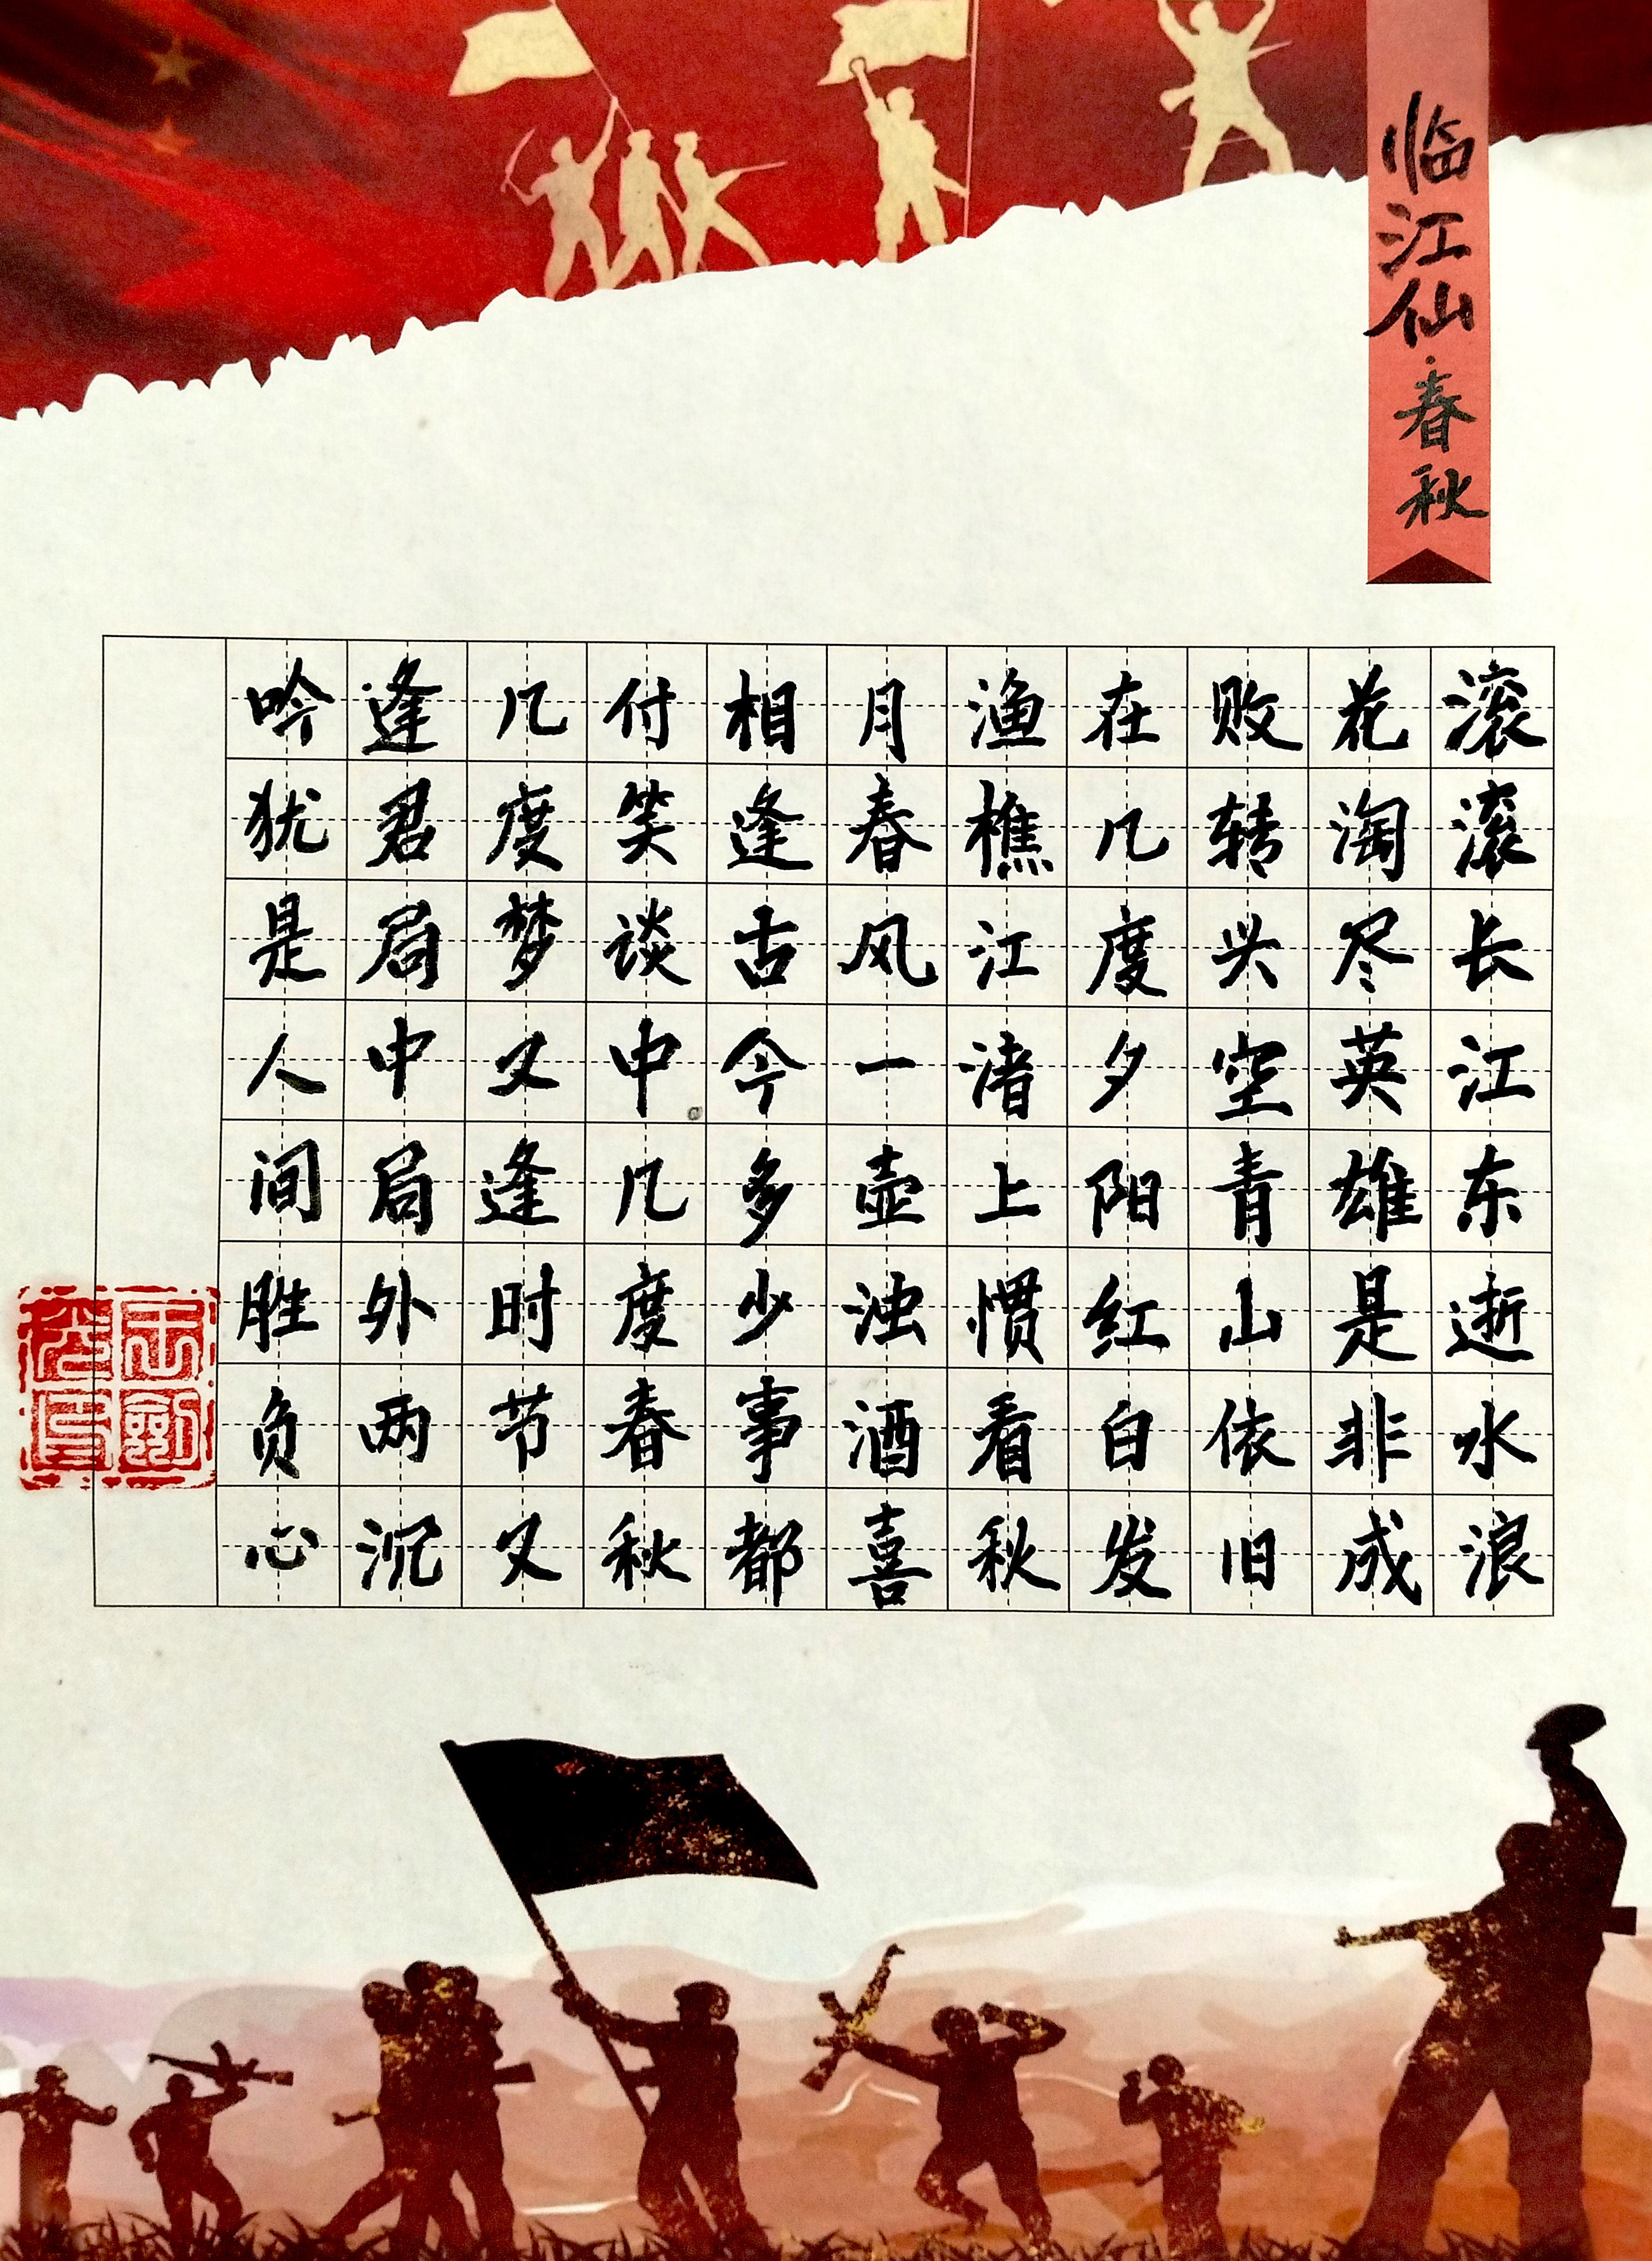 临江仙·春秋
滚滚长江东逝水浪
花淘尽英雄是非成
败转兴空青山依旧
在几度夕阳红白发
渔樵江渚上惯看秋
月春风一壶浊酒喜
相逢古今多少事都
付笑谈中几度春秋
几度梦又逢时节又
逢君局中局外两沉
吟犹是人间胜负心